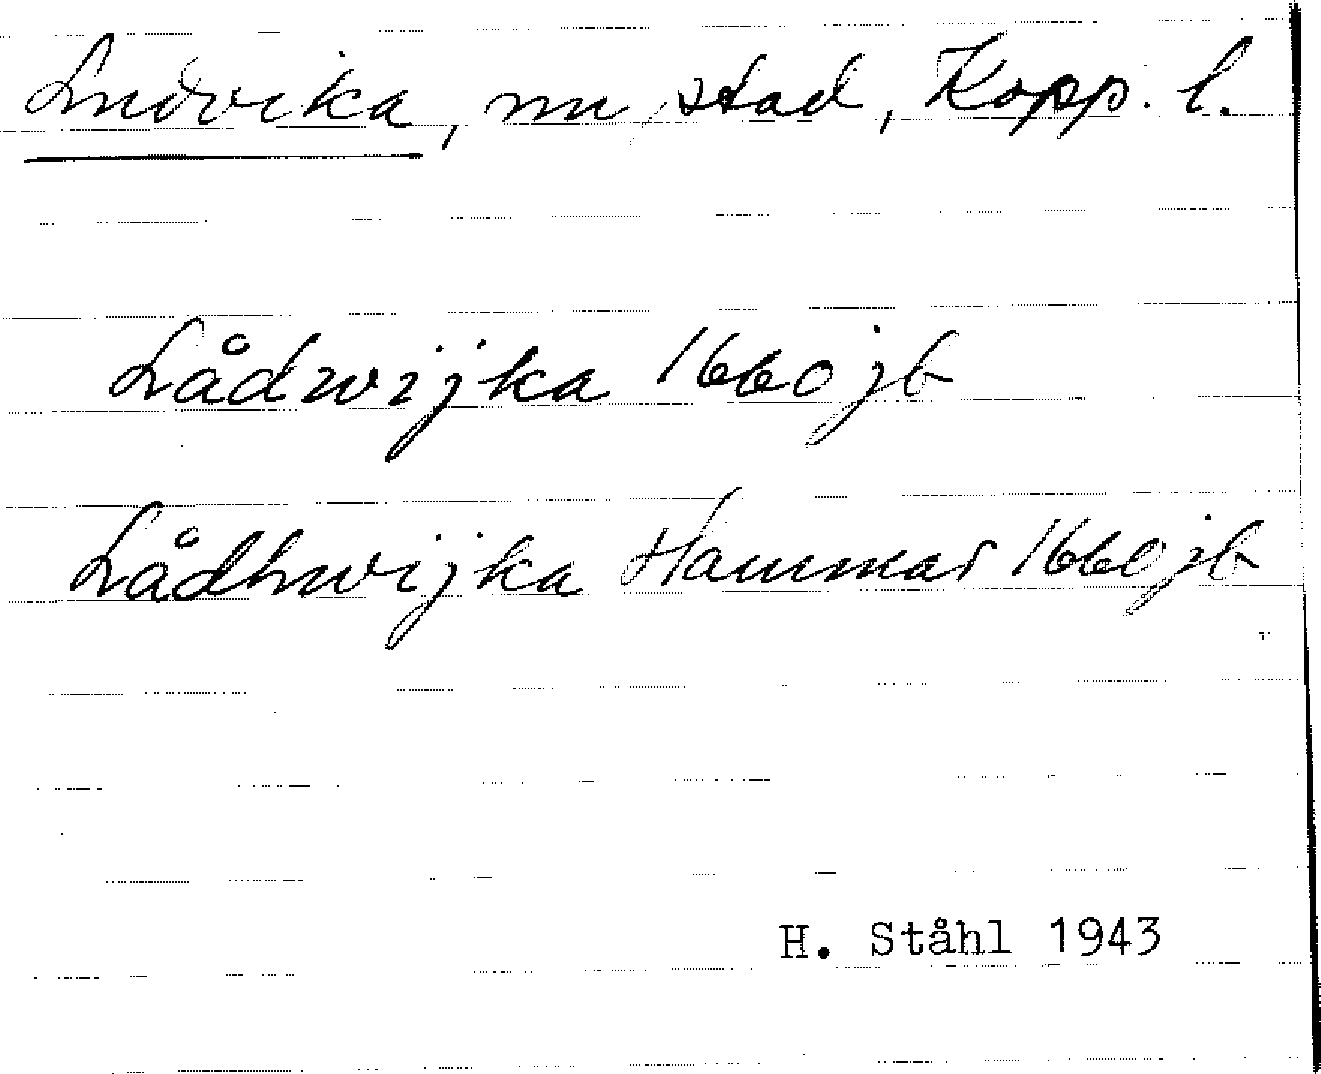 Ludvika, nu stad, Kopp. l.
Lådwijka 1660 jb
Lådhwijka Hammar 1660 jb
H. Ståhl 1943